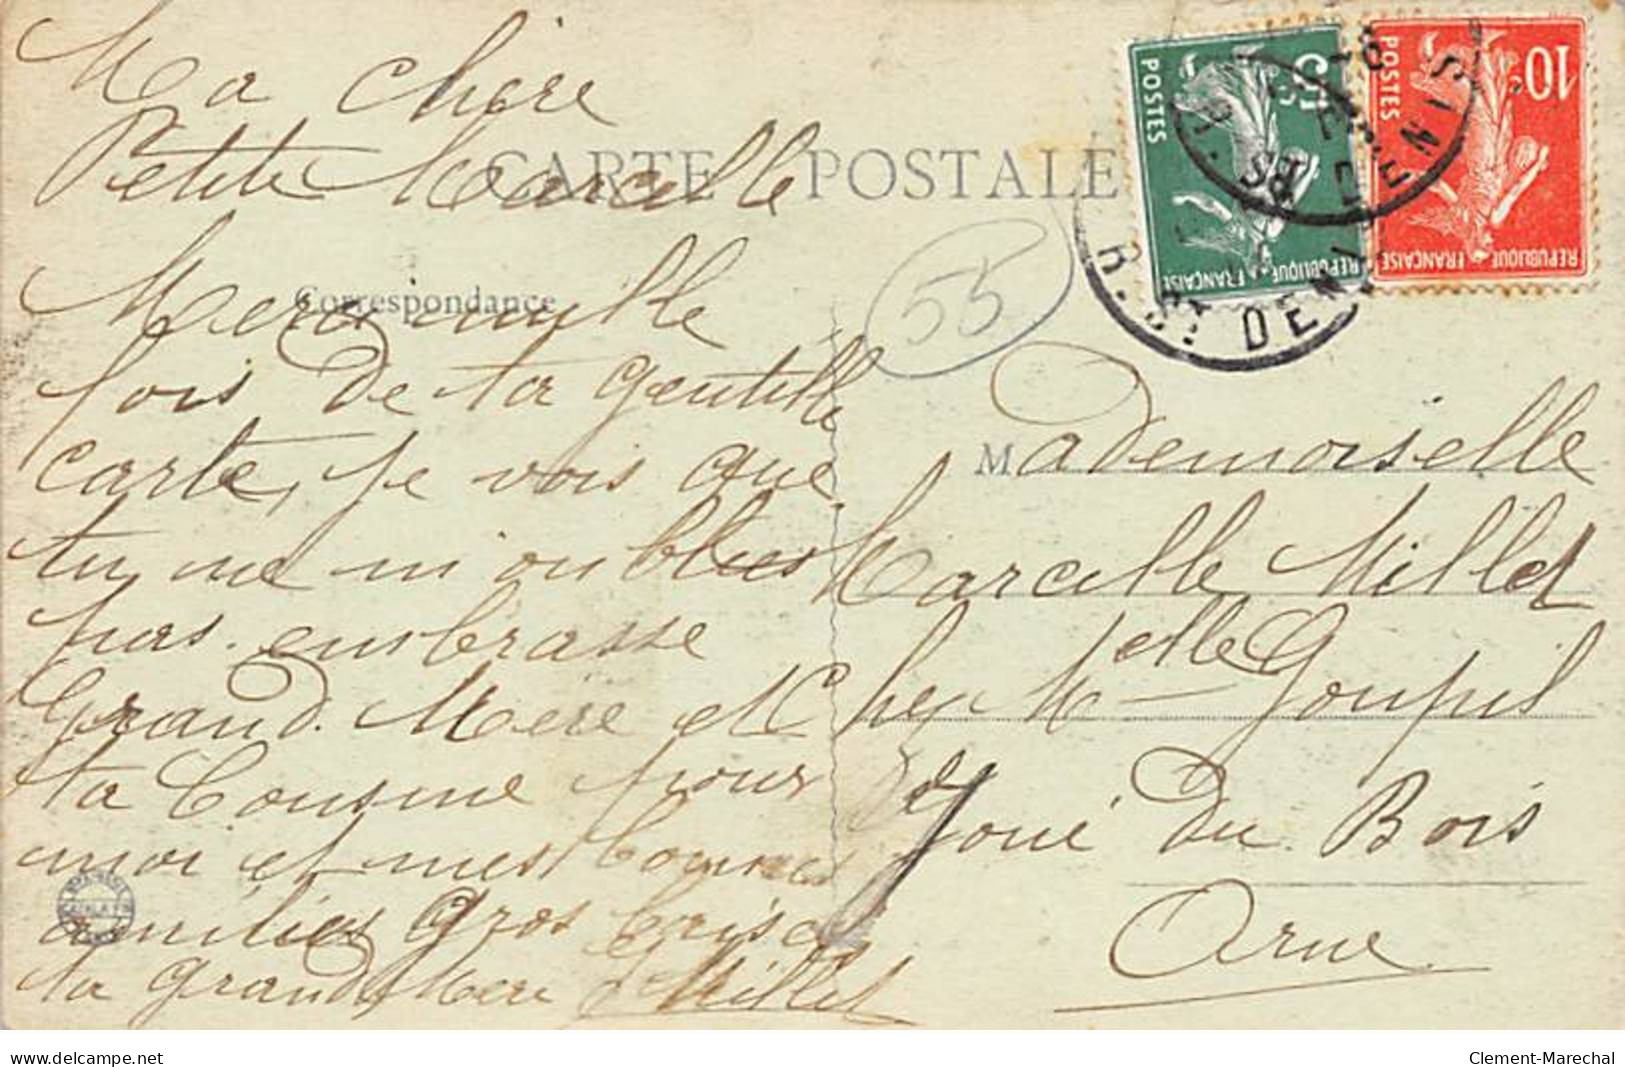 Ma chere
Petite Marcelle
CARTE POSTALE
Correspondance
Merci mille
fois de ta gentille
carte, je vois que
tu ne m'oublies
pas. embrasse
Grand Mere et
ta Cousine pour
moi et mes bonnes
amitiés Gros baisers
ta grand Mere Millet
55
Mademoiselle
Marcelle Millet
Chez Melle Goupil
Joué du Bois
Orne
5c POSTES REPUBLIQUE FRANÇAISE
10c POSTES REPUBLIQUE FRANÇAISE
delcampe.net
Clement-Marechal